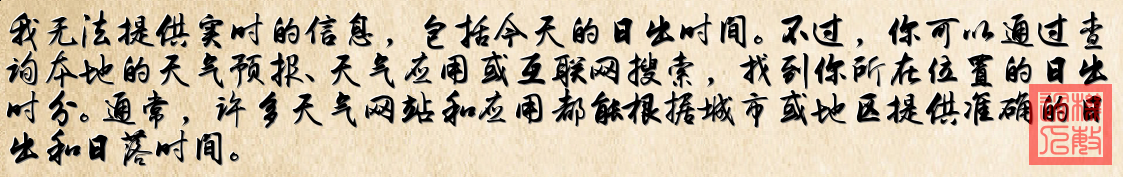 我无法提供实时的信息，包括今天的日出时间。不过，你可以通过查
询本地的天气预报、天气应用或互联网搜索，找到你所在位置的日出
时分。通常，许多天气网站和应用都能根据城市或地区提供准确的日
出和日落时间。